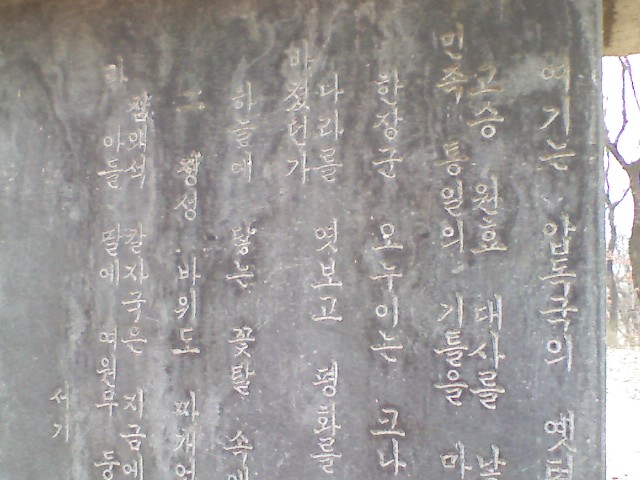 여기는 압독국의 옛터
고승 원효 대사를 낳
민족 통일의 기틀을 마
한장군 오누이는 그나
나라를 엿보고 평화를
하늘에 닿는 꽃탈 속에
그 정성 바위도 짜개
잠왜석 칼자국은 지금에
라 아들 딸에 여원무 둥
서기